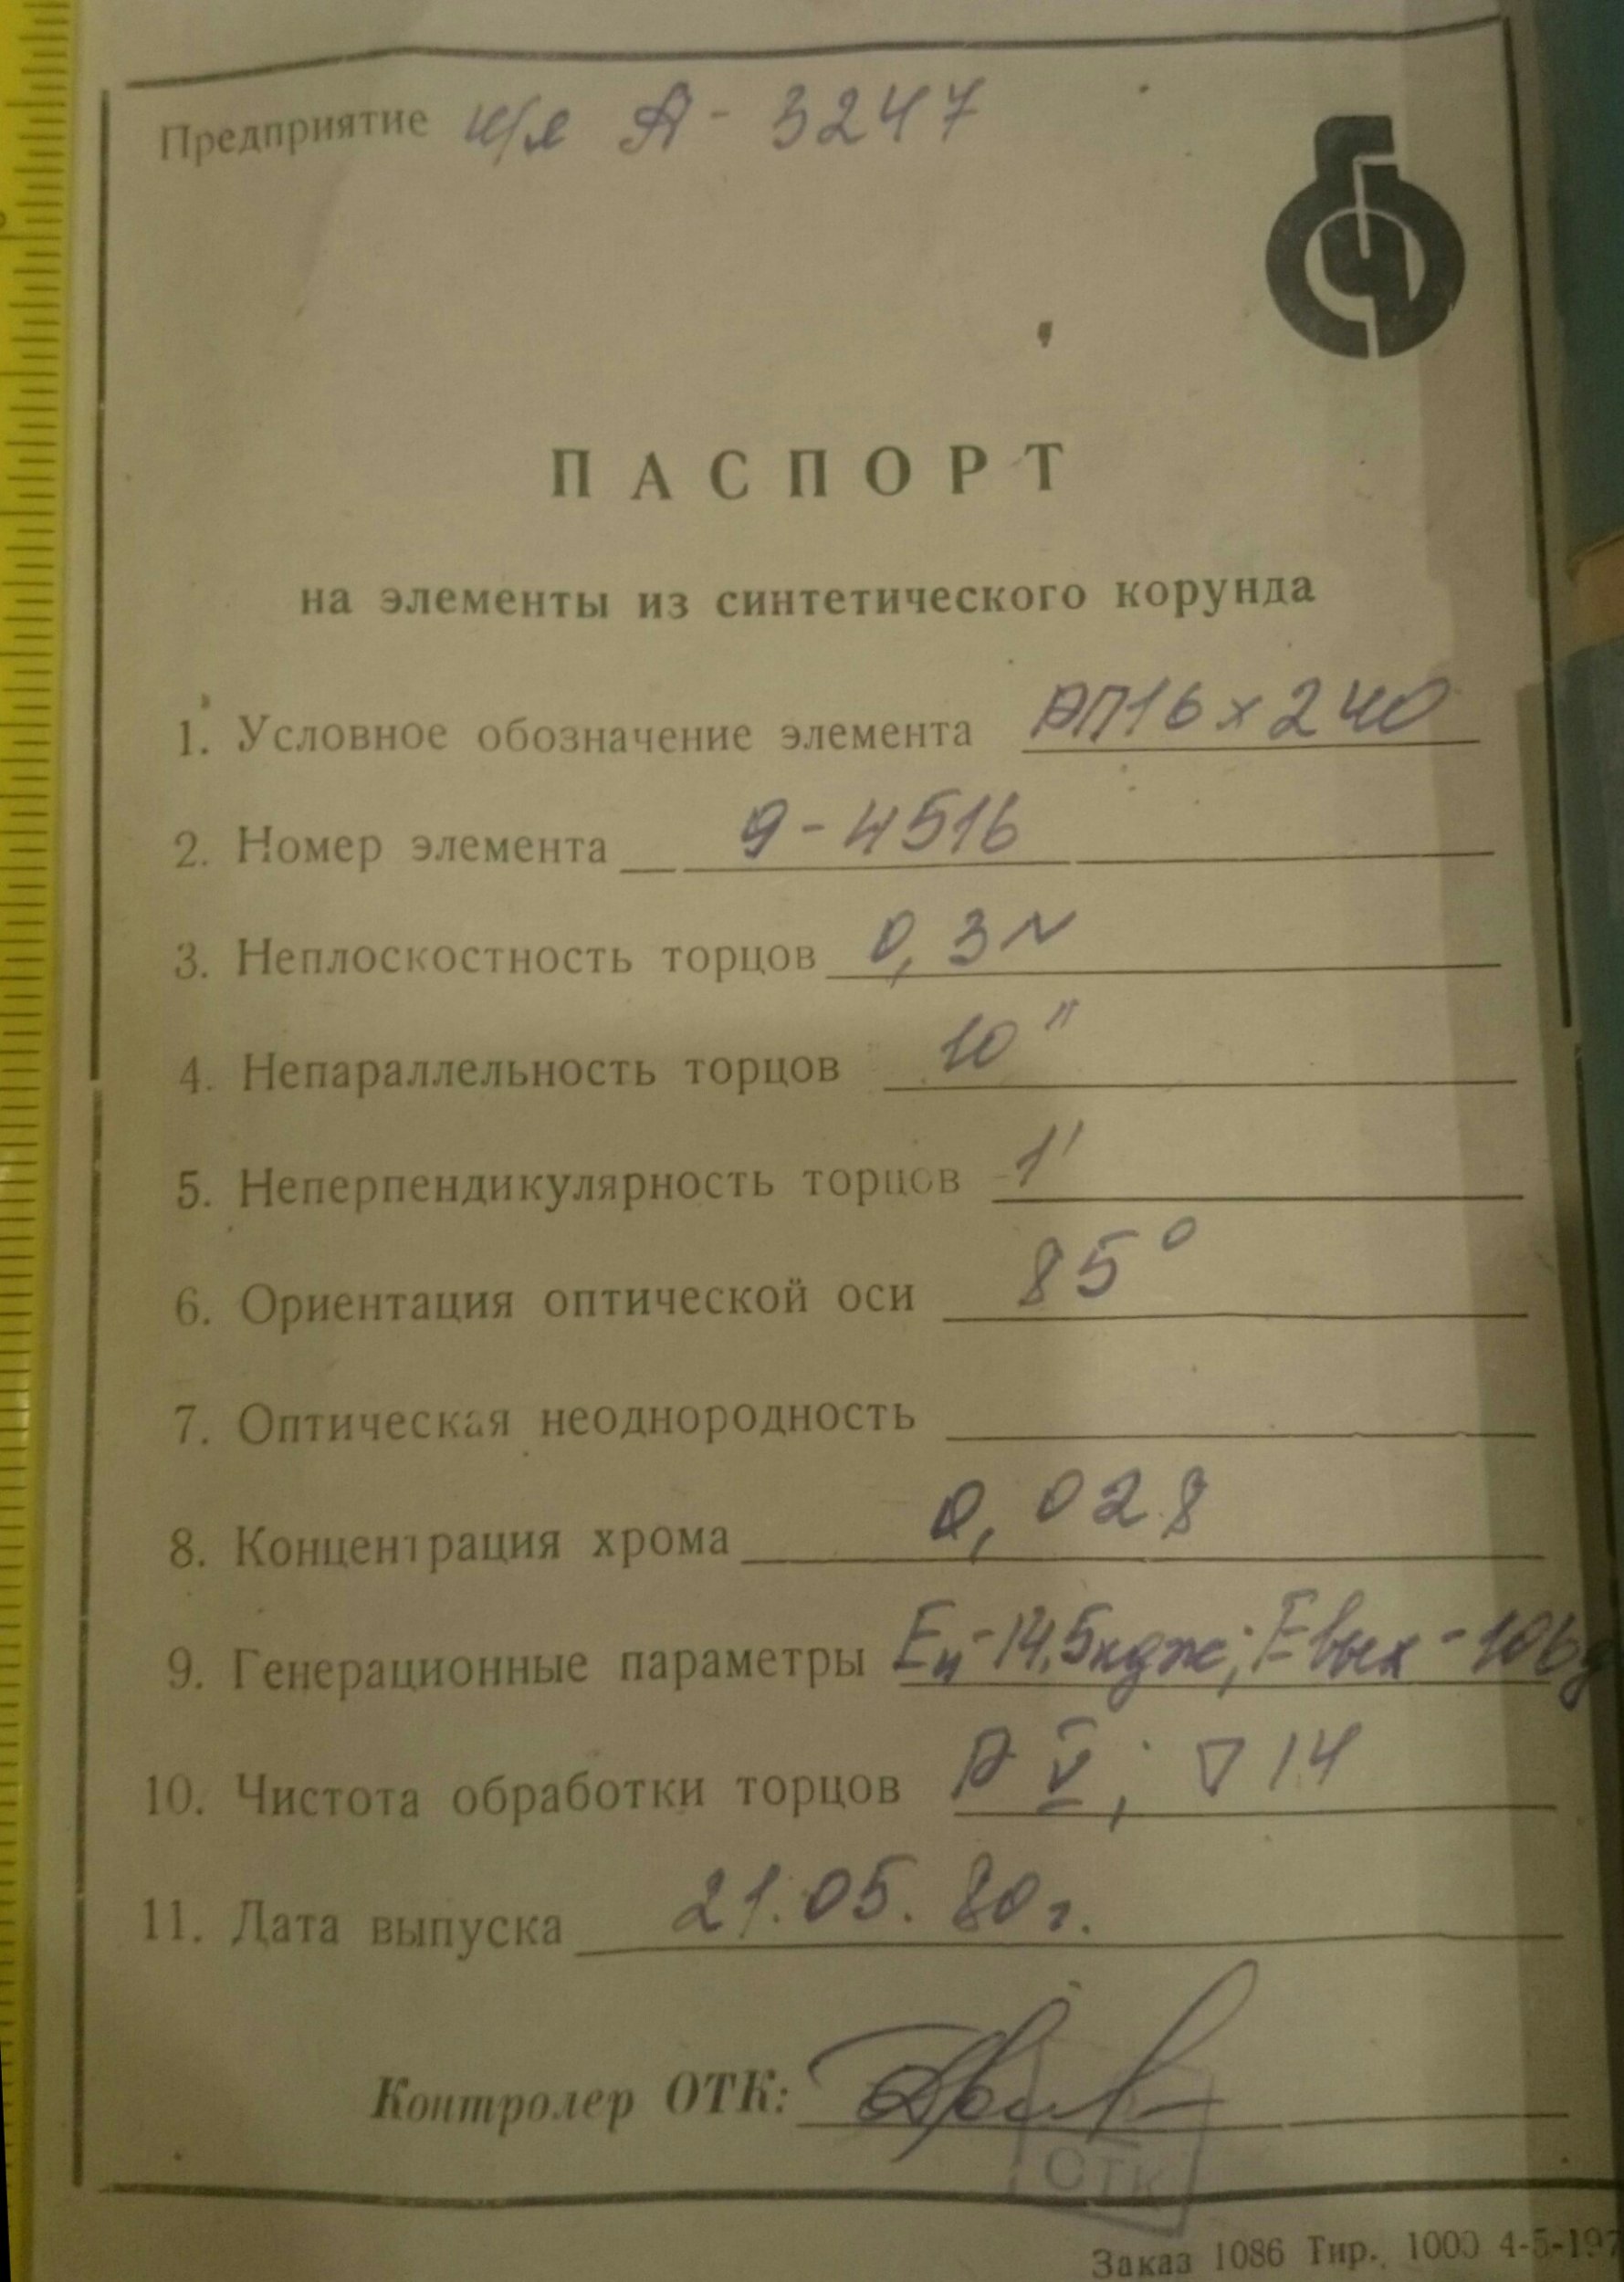 Предприятие п/я А-3247
ПАСПОРТ
на элементы из синтетического корунда
1. Условное обозначение элемента РЛ16х240
2. Номер элемента 9-4516
3. Неплоскостность торцов 0,3 N
4. Непараллельность торцов 10"
5. Неперпендикулярность торцов 1'
6. Ориентация оптической оси 85°
7. Оптическая неоднородность
8. Концентрация хрома 0,028
9. Генерационные параметры Ен-14,5кдж; Евых-106д
10. Чистота обработки торцов Р V; ▽14
11. Дата выпуска 21.05.80г.
Контролер ОТК:
ОТК
Заказ 1086 Тир. 1000 4-5-197